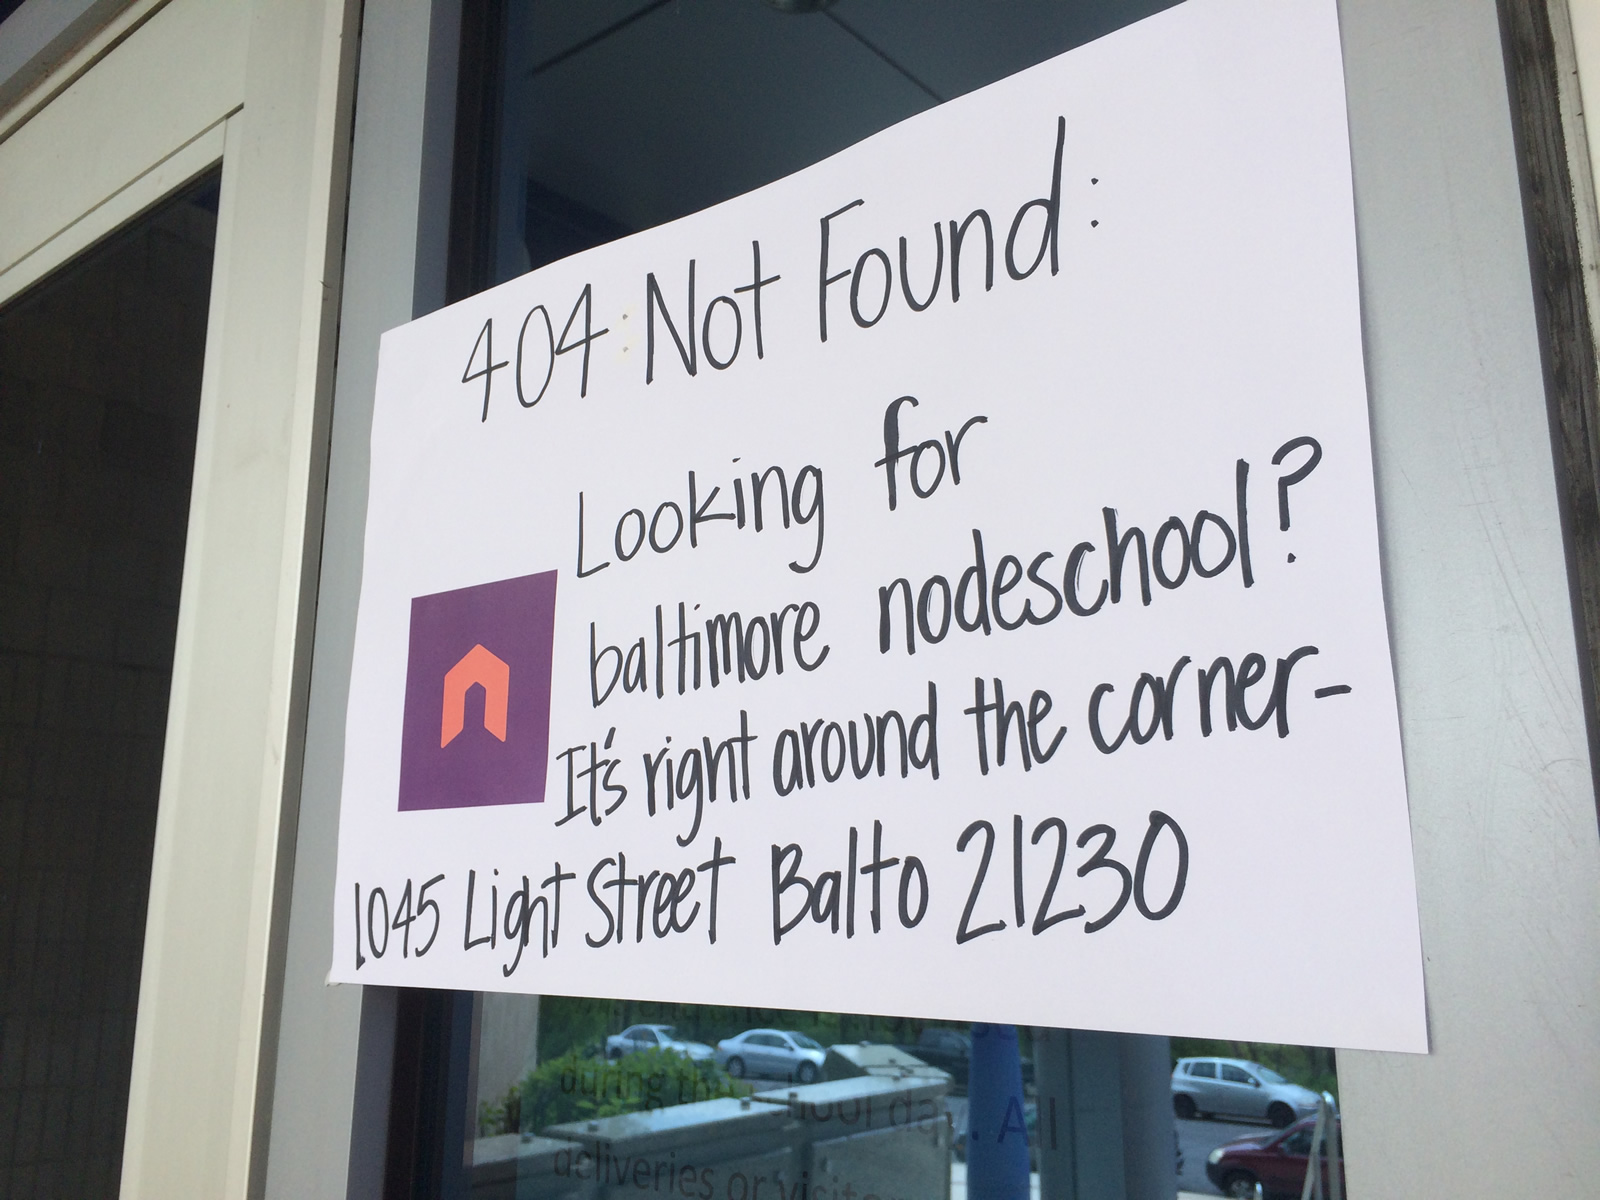 404: Not Found:
Looking for
baltimore nodeschool?
It's right around the corner-
1045 Light Street Balto 21230
during the school day. All
deliveries or visitors